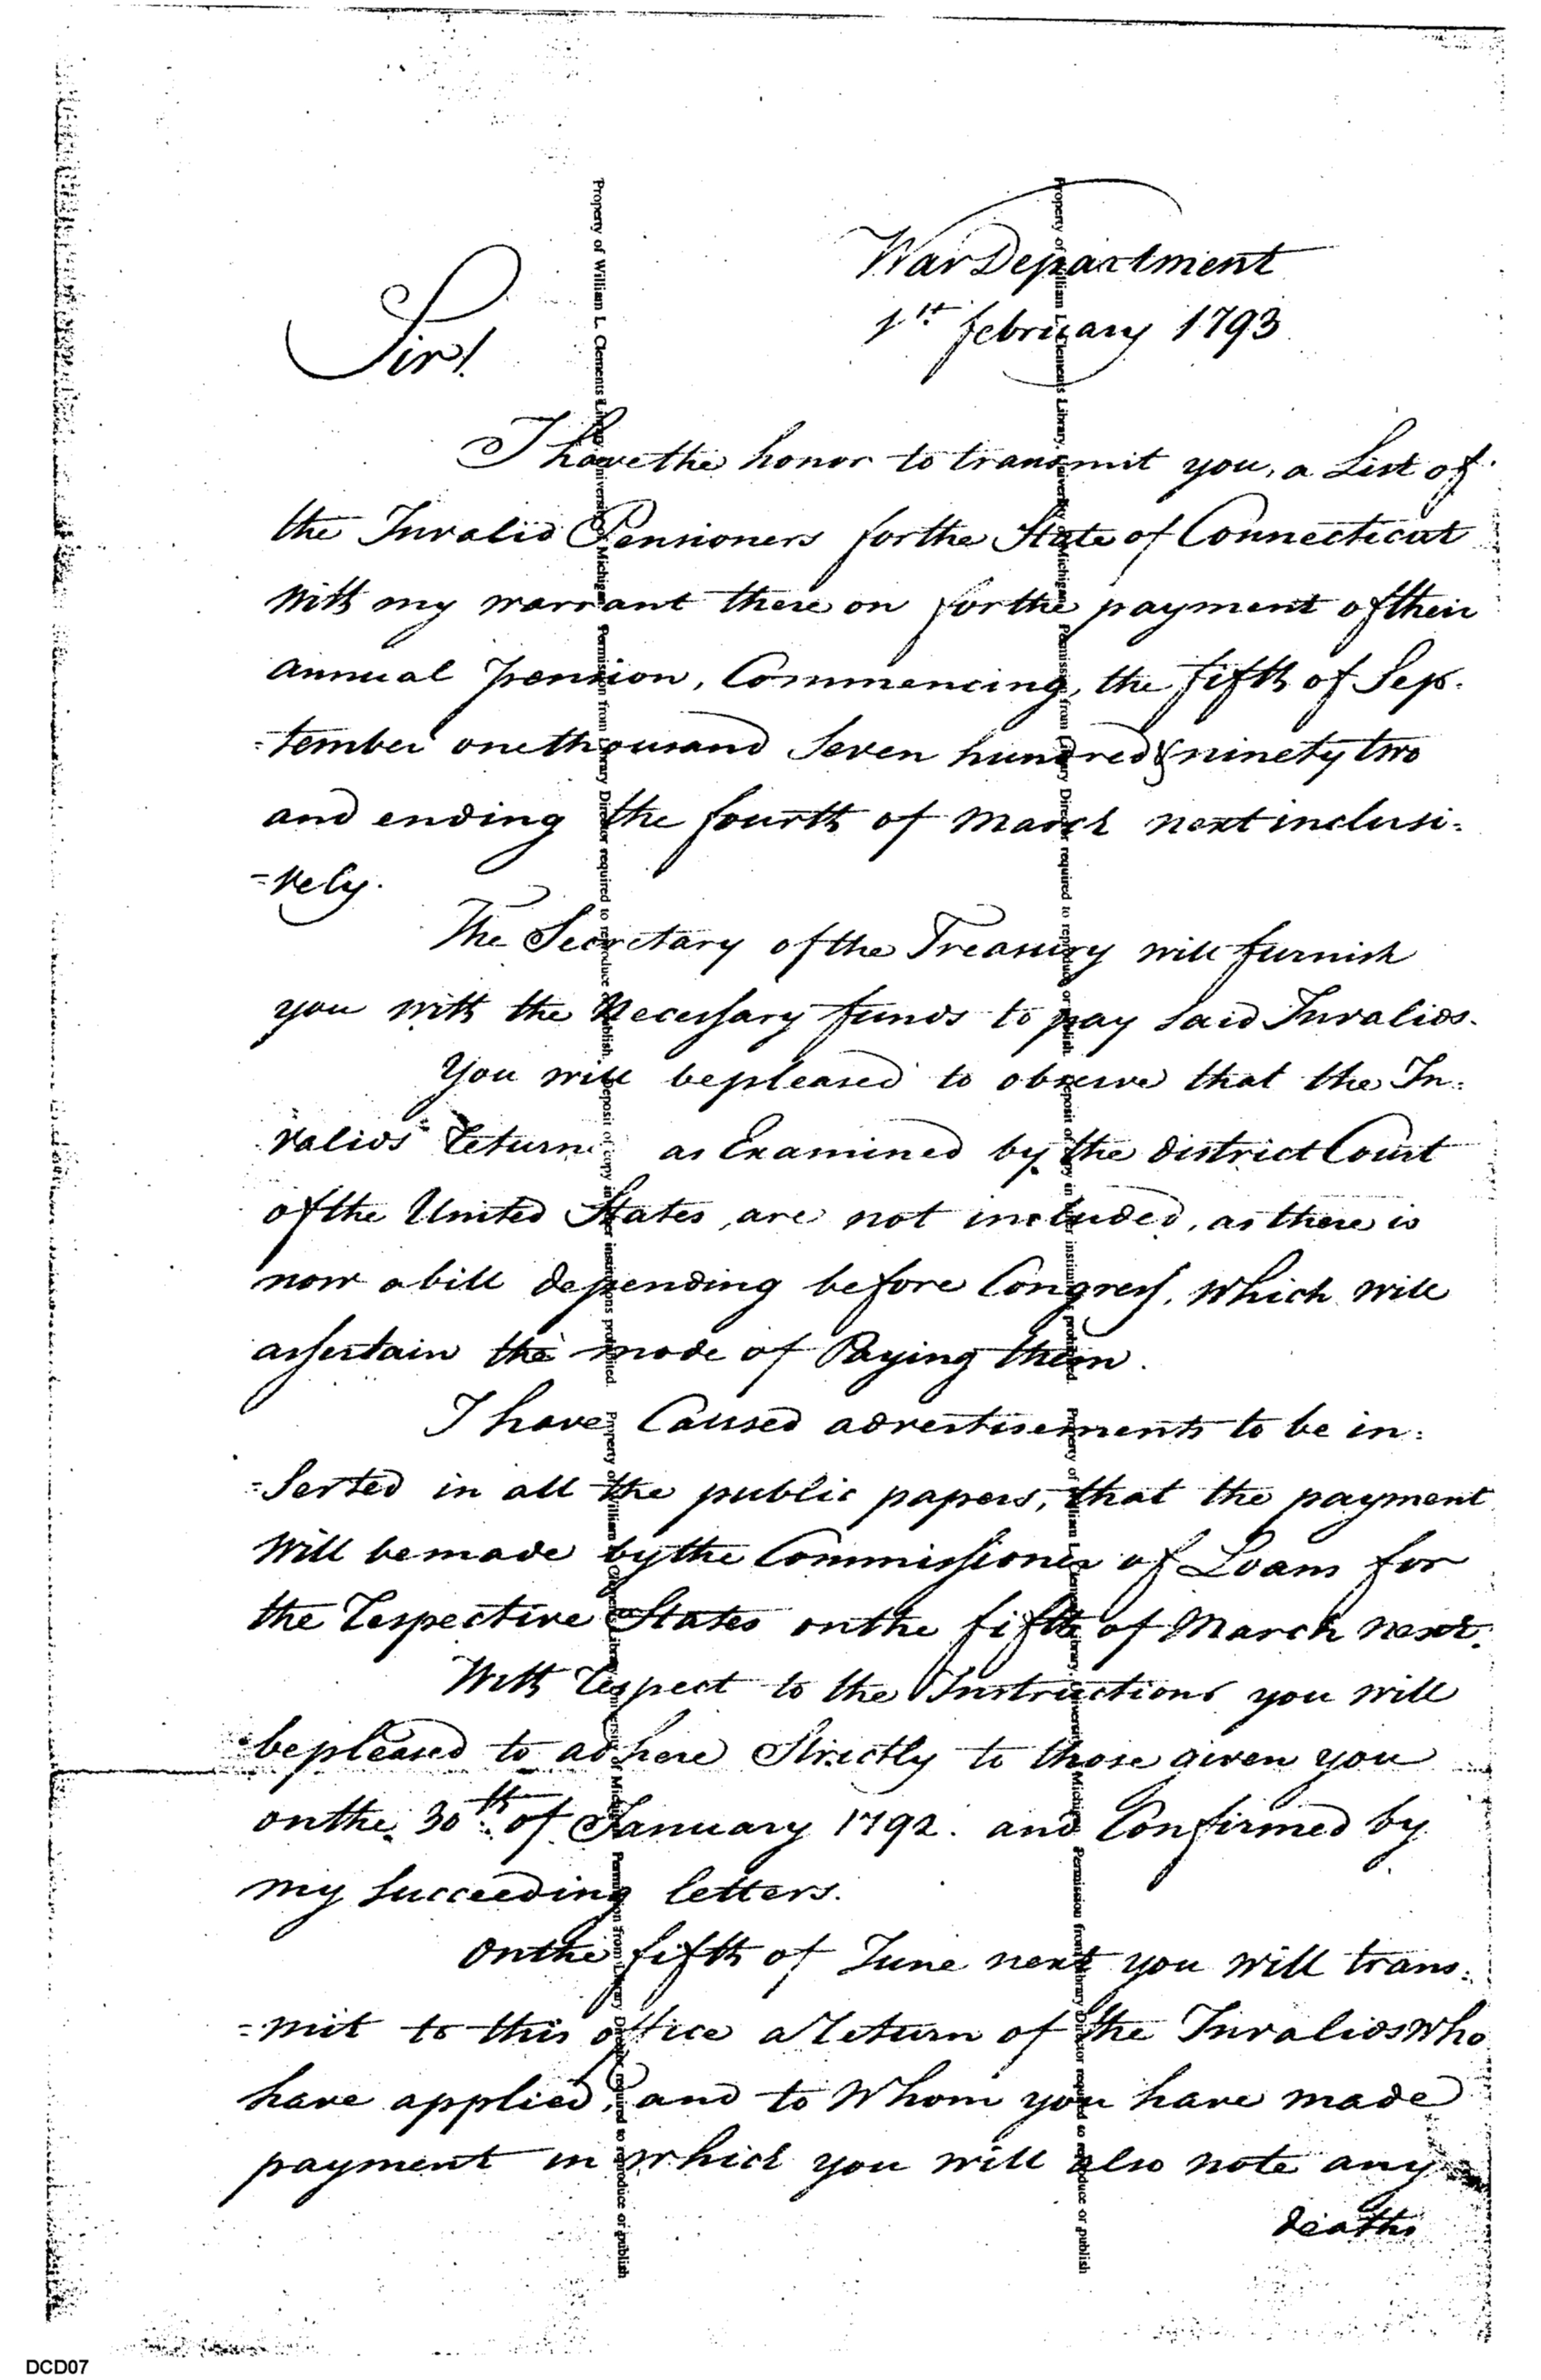 War Department
1st february 1793
Sir!
I have the honor to transmit you, a List of
the Invalid Pensioners for the State of Connecticut
With my warrant there on for the payment of their
annual pension, Commencing, the fifth of Sep-
=tember one thousand Seven hundred & ninety two
and ending the fourth of March next inclusi=
=vely.
The Secretary of the Treasury will furnish
you with the Necessary funds to pay said Invalids.
You will be pleased to observe that the In=
valids return as Examined by the district Court
of the United States, are not included, as there is
now a bill depending before Congress, which will
assertain the mode of Paying them.
I have Caused advertisements to be in=
=Serted in all the public papers, that the payment
Will be made by the Commissioner of Loans for
the respective States on the fifth of March next.
With respect to the Instructions you will
be pleased to adhere Strictly to those given you
on the 30th of January 1792. and Confirmed by
my Succeeding letters.
On the fifth of June next you will trans=
=mit to this office a return of the Invalids who
have applied, and to Whom you have made
payment in which you will also note any
deaths
Property of William L. Clements Library, University of Michigan. Permission from Library Director required to reproduce or publish. Deposit of copy in other institutions prohibited. Property of William L. Clements Library, University of Michigan. Permission from Library Director required to reproduce or publish
Property of William L. Clements Library, University of Michigan. Permission from Library Director required to reproduce or publish. Deposit of copy in other institutions prohibited. Property of William L. Clements Library, University of Michigan. Permission from Library Director required to reproduce or publish
DCD07